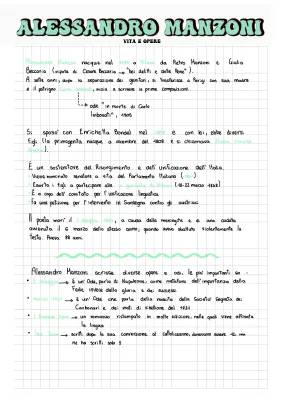 ALESSANDRO MANZONI
VITA E OPERE
nacque nel a da Pietro Manzoni e Giulia
Beccaria (nipote di Cesare Beccaria → "Dei delitti e delle Pene").
A sette anni, dopo la separazione dei genitori, si trasferisce a Parigi con sua madre
e il patrigno inizia a scrivere le prime composizioni.
→ ode "in morte di Carlo
Imbonati", 1805
Si sposa con Enrichetta Blondel nel e con lei, ebbe diversi
figli (la primogenita nacque a dicembre del 1808 e si chiamava
È un sostenitore del Risorgimento e dell'unificazione dell'Italia.
Viene nominato senatore a vita del Parlamento Italiano
Esorta i figli a partecipare alle (18-22 marzo 1848)
È a capo dell'comitato per l'unificazione linguistica
Fa una petizione per l'intervento in Sardegna contro gli austriaci
Il poeta morì il a causa della meningite e di una caduta
avvenuta il 6 marzo dello stesso anno, quando aveva sbattuto violentemente la
testa. Aveva 88 anni.
Alessandro Manzoni scrisse diverse opere e odi, le più importanti so:
→ è un'Ode, parla di Napoleone, come metafora dell'importanza della
Fede invece della gloria e del successo
→ è un'Ode che parla della nascita delle Società Segrete dei
Carbonari e dei moti di ribellione del 1821
→ un romanzo ristampato in molte edizioni, nelle quali viene affinata
la lingua
→ scritti dopo la sua conversione al cattolicesimo, dovevano essere 12 ma
ne ha scritti solo 5